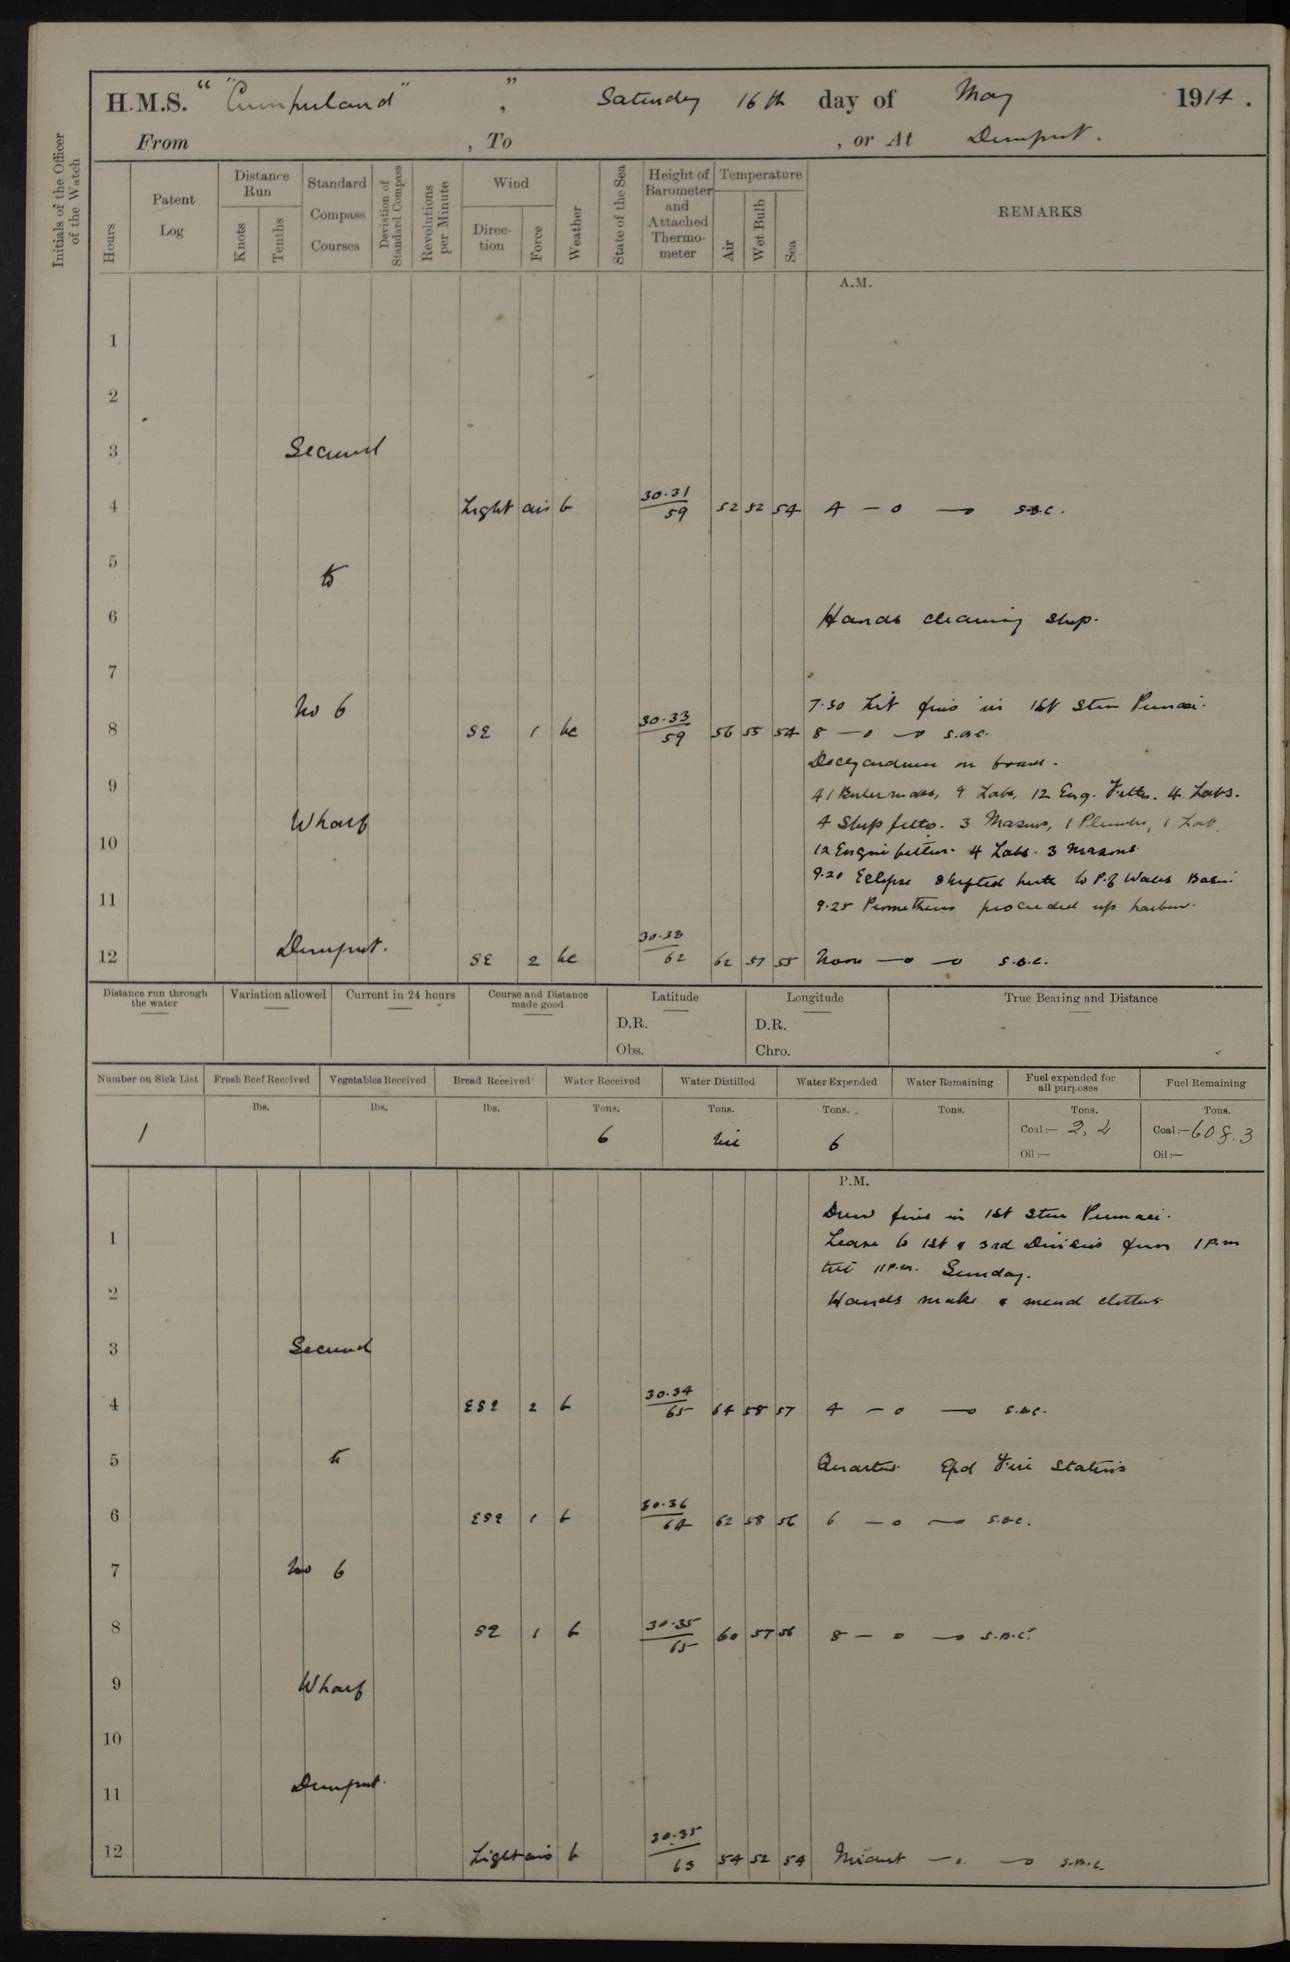 H.M.S. " "Cumberland" ", Saturday 16th day of May 1914.
From , To , or At Devonport.
Initials of the Officer of the Watch
Hours
Patent Log
Distance Run
Knots
Tenths
Standard Compass Courses
Deviation of Standard Compass
Revolutions per Minute
Wind
Direction
Force
Weather
State of the Sea
Height of Barometer and Attached Thermometer
Temperature
Air
Wet Bulb
Sea
REMARKS
A.M.
1
2
3 Secured
4 Light airs b 30.31 59 52 52 54 4 — o — S.B.C.
5 to
6 Hands cleaning ship.
7
No 6 7.30 Lit fires in 1st Steam Pinnace.
8 SE 1 bc 30.33 59 56 55 54 8 — o — S.B.C.
Dockyardmen on board.
9 41 Boilermakers, 9 Labs, 12 Eng. Fitters. 4 Labs.
Wharf 4 Ship fitts. 3 Masons, 1 Plumber, 1 Lab.
10 12 Engine fitters. 4 Labs. 3 Masons
9.20 Eclipse shifted berth to P. of Wales Basin.
11 9.25 Prometheus proceeded up harbour.
12 Devonport. SE 2 bc 30.33 62 62 57 55 Noon — o — S.B.C.
Distance run through the water
Variation allowed
Current in 24 hours
Course and Distance made good
Latitude
D.R.
Obs.
Longitude
D.R.
Chro.
True Bearing and Distance
Number on Sick List Fresh Beef Received Vegetables Received Bread Received Water Received Water Distilled Water Expended Water Remaining Fuel expended for all purposes Fuel Remaining
lbs. lbs. lbs. Tons. Tons. Tons. Tons. Tons. Tons.
1 6 nil 6 Coal:— 2.2 Coal:— 608.3
Oil:— Oil:—
P.M.
Drew fires in 1st Steam Pinnace.
1 Leave to 1st & 3rd Divisions from 1 p.m
till 11 p.m. Sunday.
2 Hands make & mend clothes
3 Secured
4 ESE 2 b 30.34 65 64 58 57 4 — o — S.B.C.
5 to Quarters. Exd Fire Stations
6 ESE 1 b 30.36 64 62 58 56 6 — o — S.B.C.
7 No 6
8 SE 1 b 30.35 65 60 57 56 8 — o — S.B.C.
9 Wharf
10
11 Devonport.
12 Light airs b 30.35 63 54 52 54 Midnt — o — S.B.C.